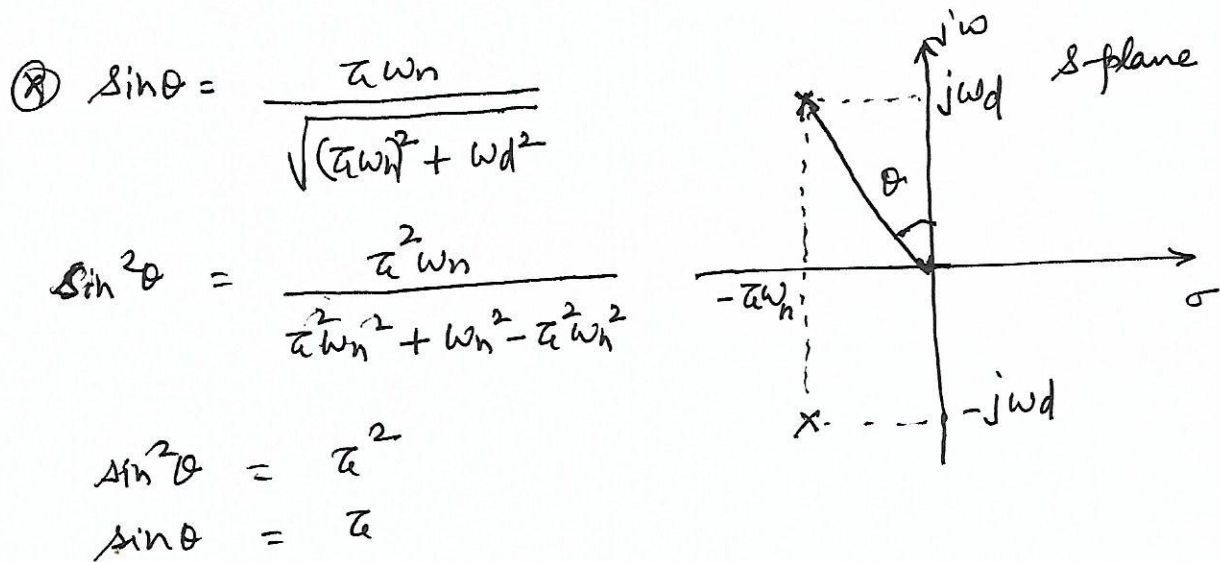 ⊗ sinθ = ξωn / √((ξωn)² + ωd²)
sin²θ = ξ²ωn / ξ²ωn² + ωn² - ξ²ωn²
sin²θ = ξ²
sinθ = ξ
jω
s-plane
jωd
θ
-ξωn
σ
-jωd